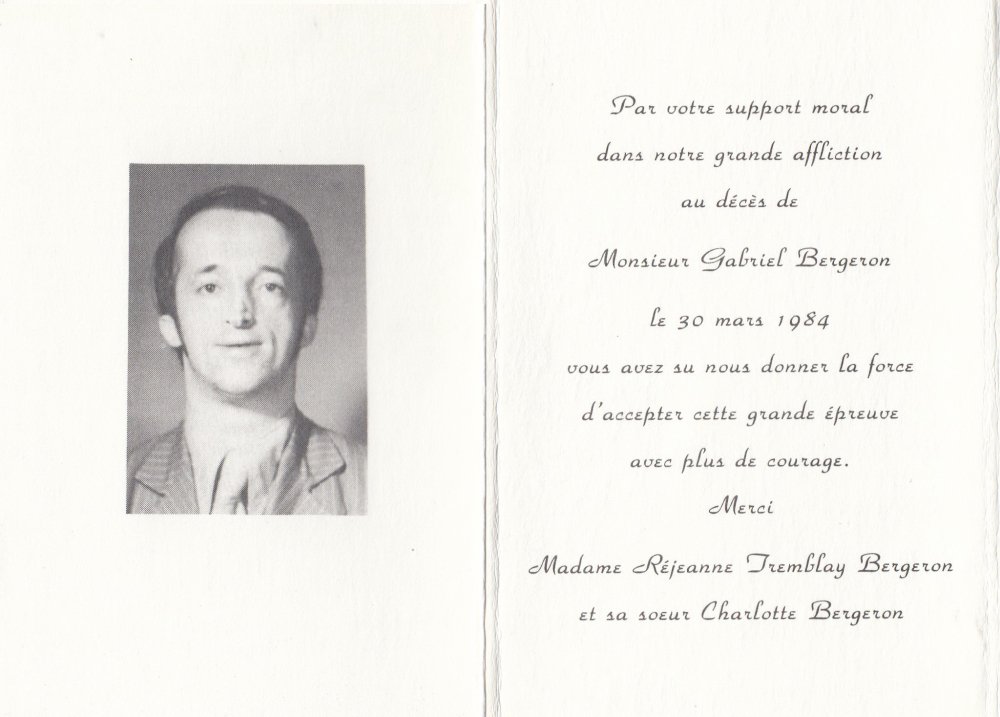 Par votre support moral
dans notre grande affliction
au décès de
Monsieur Gabriel Bergeron
le 30 mars 1984
vous avez su nous donner la force
d'accepter cette grande épreuve
avec plus de courage.
Merci
Madame Réjeanne Tremblay Bergeron
et sa soeur Charlotte Bergeron